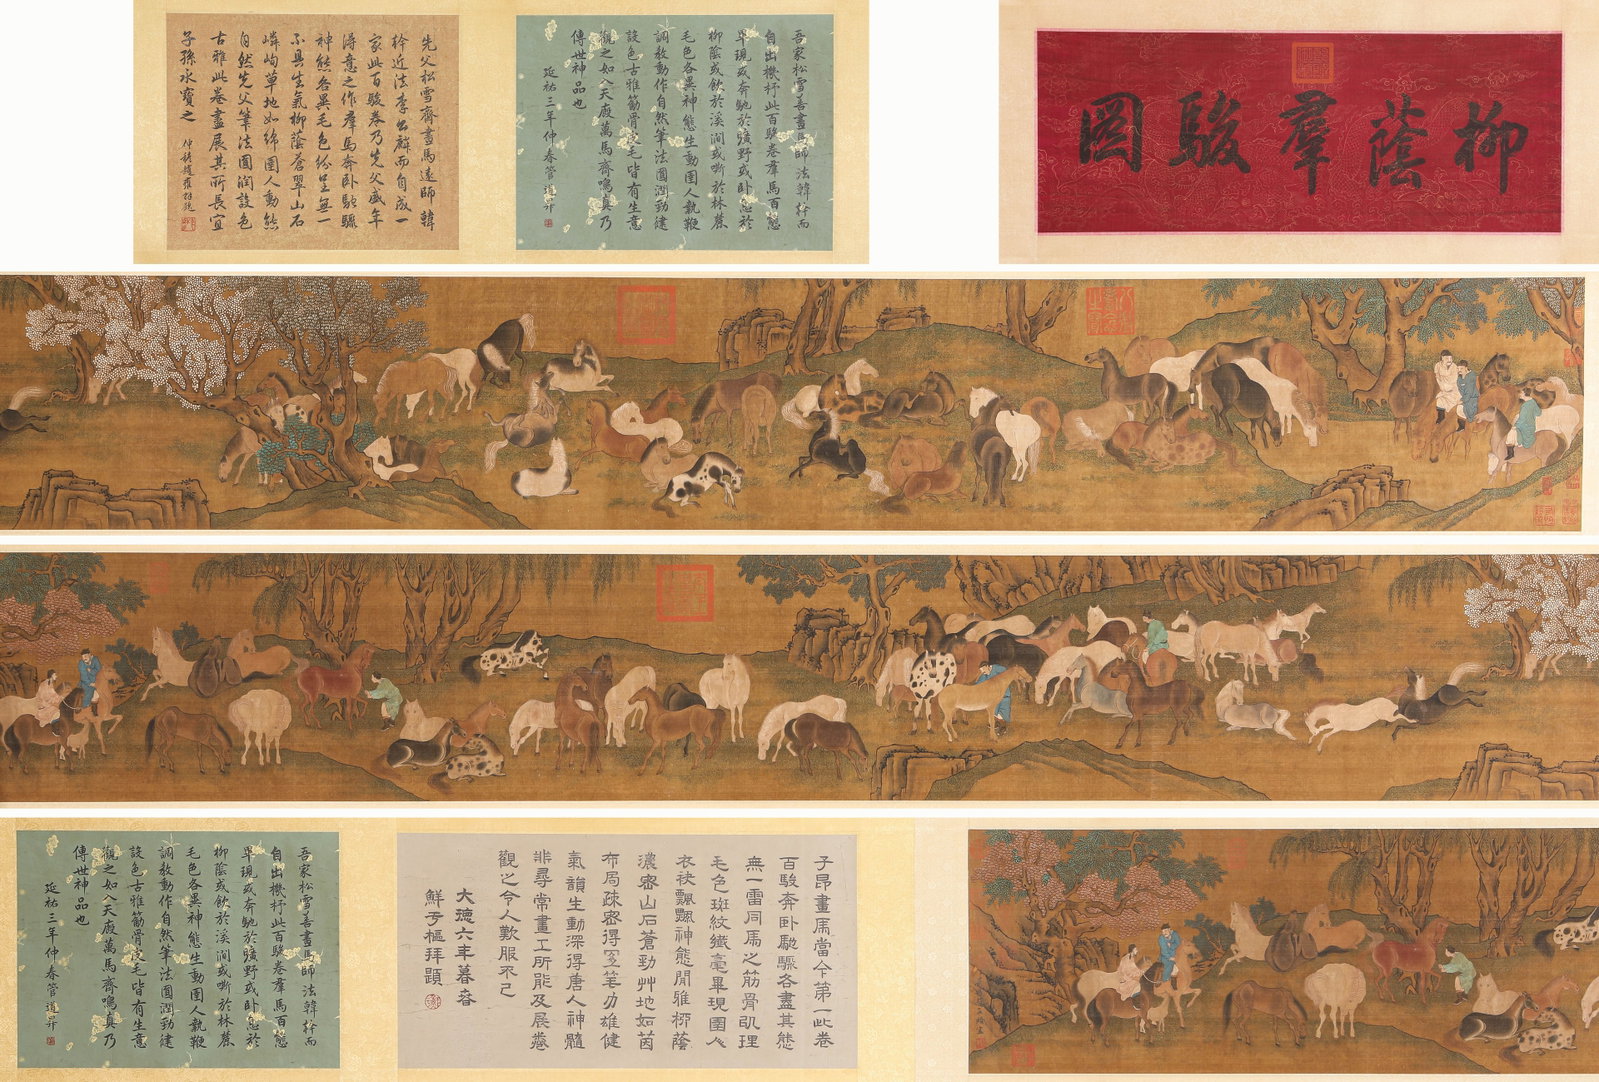 柳蔭羣駿圖
吾家松雪善畫馬師法韓幹而
自出機杼此百駿卷羣馬百態
畢現或奔馳於曠野或卧憩於
柳陰或飲於溪澗或嘶於林麓
毛色各異神態生動圉人執鞭
調教動作自然筆法圓潤勁健
設色古雅筋骨皮毛皆有生意
觀之如入天廄萬馬齊鳴真乃
傳世神品也
延祐三年仲春管道昇
先父松雪齋畫馬遠師韓
幹近法李公麟而自成一
家此百駿卷乃先父盛年
得意之作羣馬奔卧馳驟
神態各異毛色紛呈無一
不具生氣柳蔭蒼翠山石
嶙峋草地如綿圉人動態
自然先父筆法圓潤設色
古雅此卷盡展其所長宜
子孫永寶之
仲穆趙雍拜觀
子昂畫馬當今第一此卷
百駿奔卧馳驟各盡其態
無一雷同馬之筋骨肌理
毛色斑紋纖毫畢現圉人
衣袂飄飄神態閒雅栁蔭
濃密山石蒼勁艸地如茵
布局疎密得宜筆力雄健
氣韻生動深得唐人神髓
非尋常畫工所能及展卷
觀之令人歎服不已
大德六年暮春
鮮于樞拜題
吾家松雪善畫馬師法韓幹而
自出機杼此百駿卷羣馬百態
畢現或奔馳於曠野或卧憩於
柳陰或飲於溪澗或嘶於林麓
毛色各異神態生動圉人執鞭
調教動作自然筆法圓潤勁健
設色古雅筋骨皮毛皆有生意
觀之如入天廄萬馬齊鳴真乃
傳世神品也
延祐三年仲春管道昇